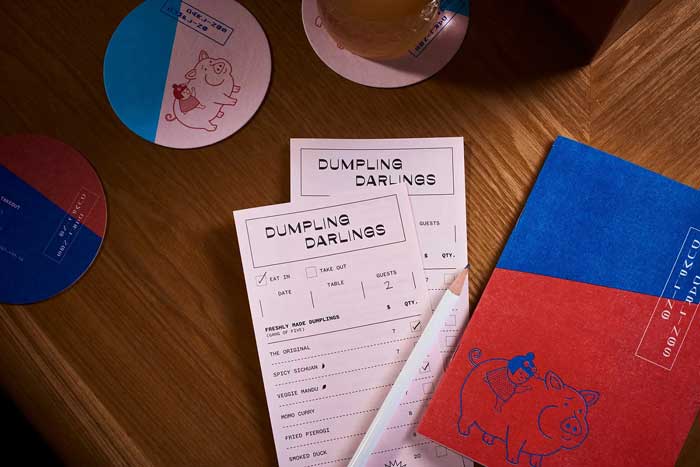 DUMPLING
DARLINGS
GUESTS
$ QTY.
DUMPLING
DARLINGS
EAT IN
TAKE OUT
DATE
TABLE
GUESTS
2
FRESHLY MADE DUMPLINGS
(GANG OF FIVE)
$ QTY.
THE ORIGINAL 7
SPICY SICHUAN 7
VEGGIE MANDU
MOMO CURRY
FRIED PIEROGI
SMOKED DUCK
20
TAKEOUT